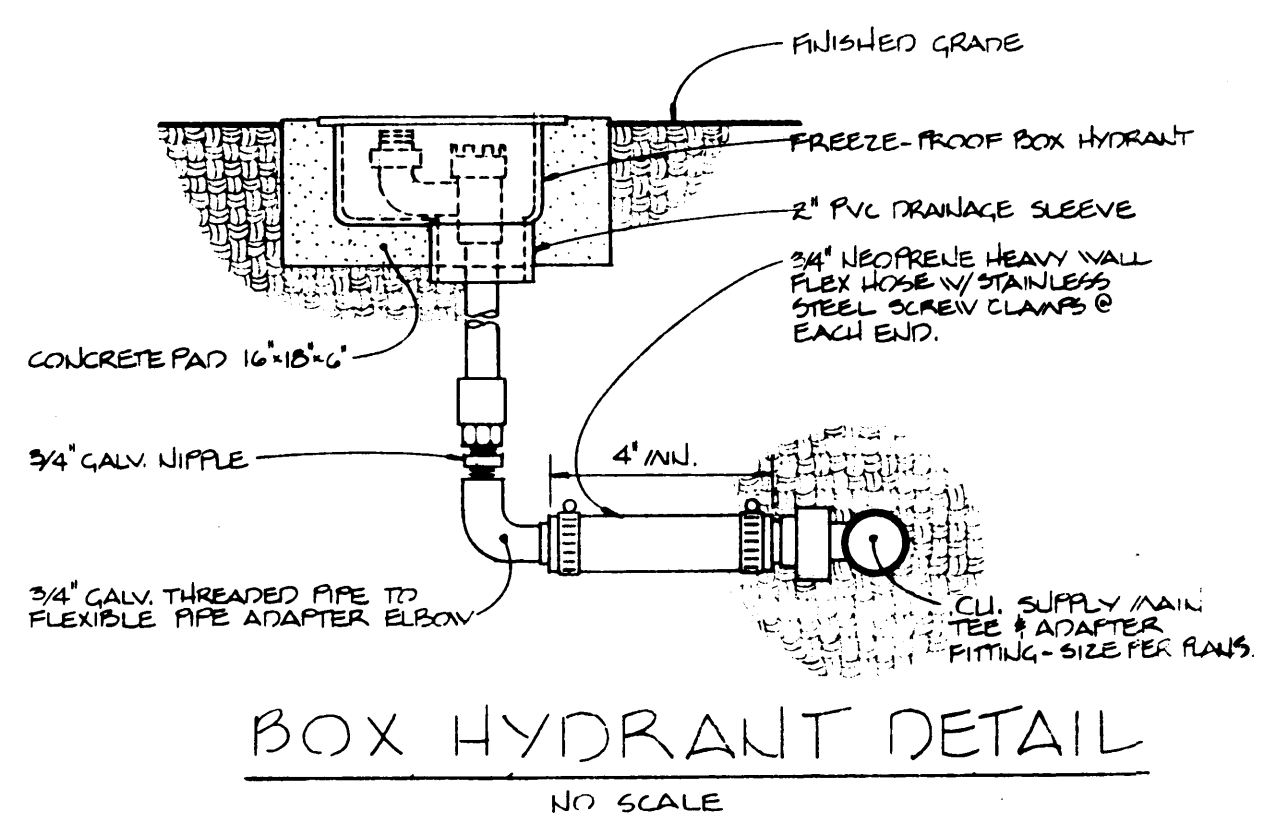 FINISHED GRADE
FREEZE-PROOF BOX HYDRANT
2" PVC DRAINAGE SLEEVE
3/4" NEOPRENE HEAVY WALL
FLEX HOSE W/ STAINLESS
STEEL SCREW CLAMPS @
EACH END.
CONCRETE PAD 16"x18"x6"
3/4" GALV. NIPPLE
4" MIN.
3/4" GALV. THREADED PIPE TO
FLEXIBLE PIPE ADAPTER ELBOW
SUPPLY MAIN
TEE & ADAPTER
FITTING - SIZE PER PLANS.
BOX HYDRANT DETAIL
NO SCALE